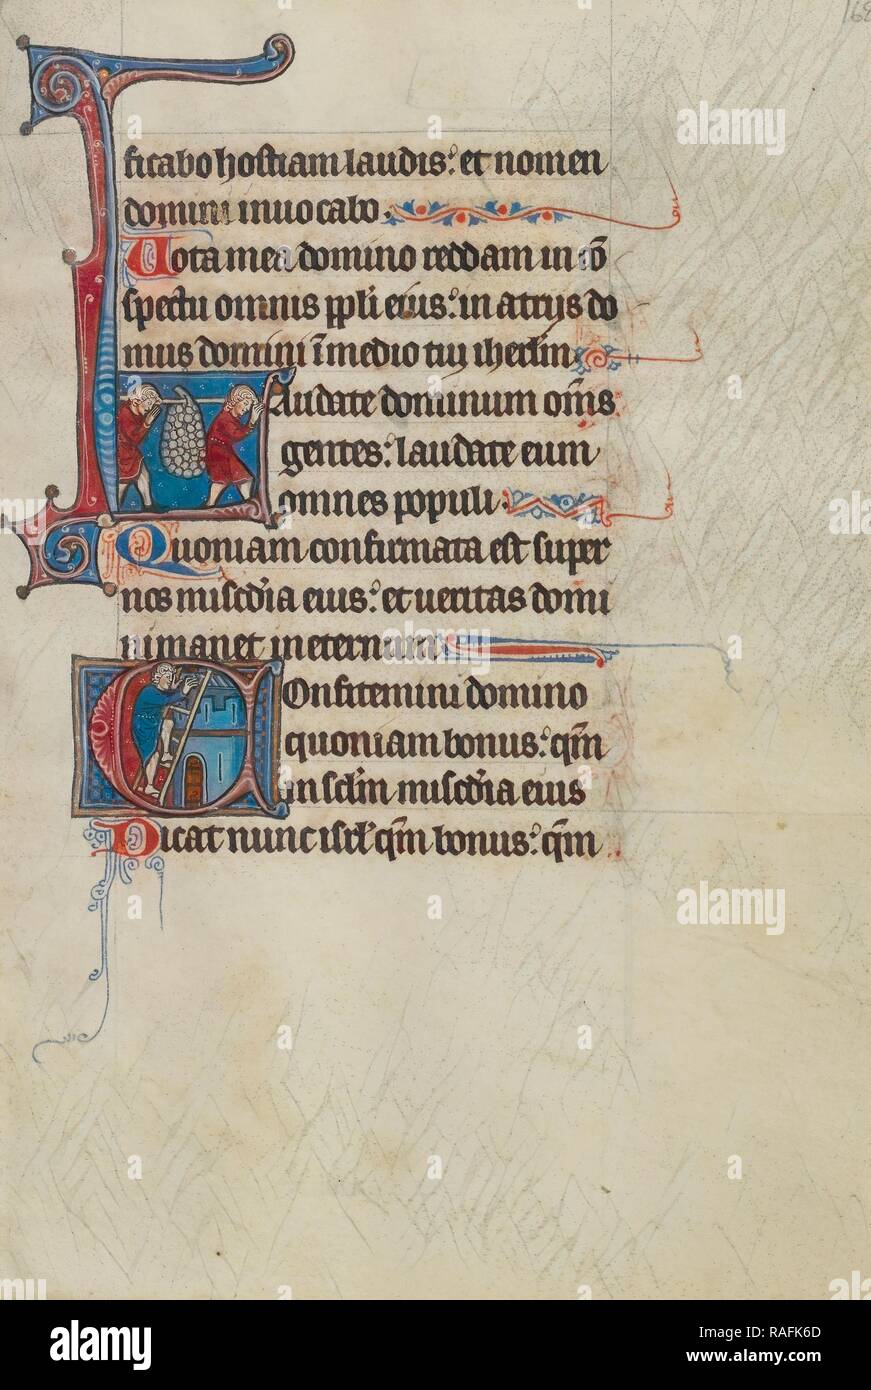 168
ficabo hostiam laudis: et nomen
domini inuocabo.
Uota mea domino reddam in cõ
spectu omnis ppli eius: in atrijs do
mus domini ĩ medio tui iherlm.
Laudate dominum om̃s
gentes: laudate eum
omnes populi.
Quoniam confirmata est super
nos misc̃dia eius: et ueritas domi
ni manet in eternum.
Confitemini domino
quoniam bonus: qm̃
in sclm̃ misc̃dia eius
Dicat nunc isrl̃ qm̃ bonus: qm̃
alamy
alamy
Image ID: RAFK6D
www.alamy.com